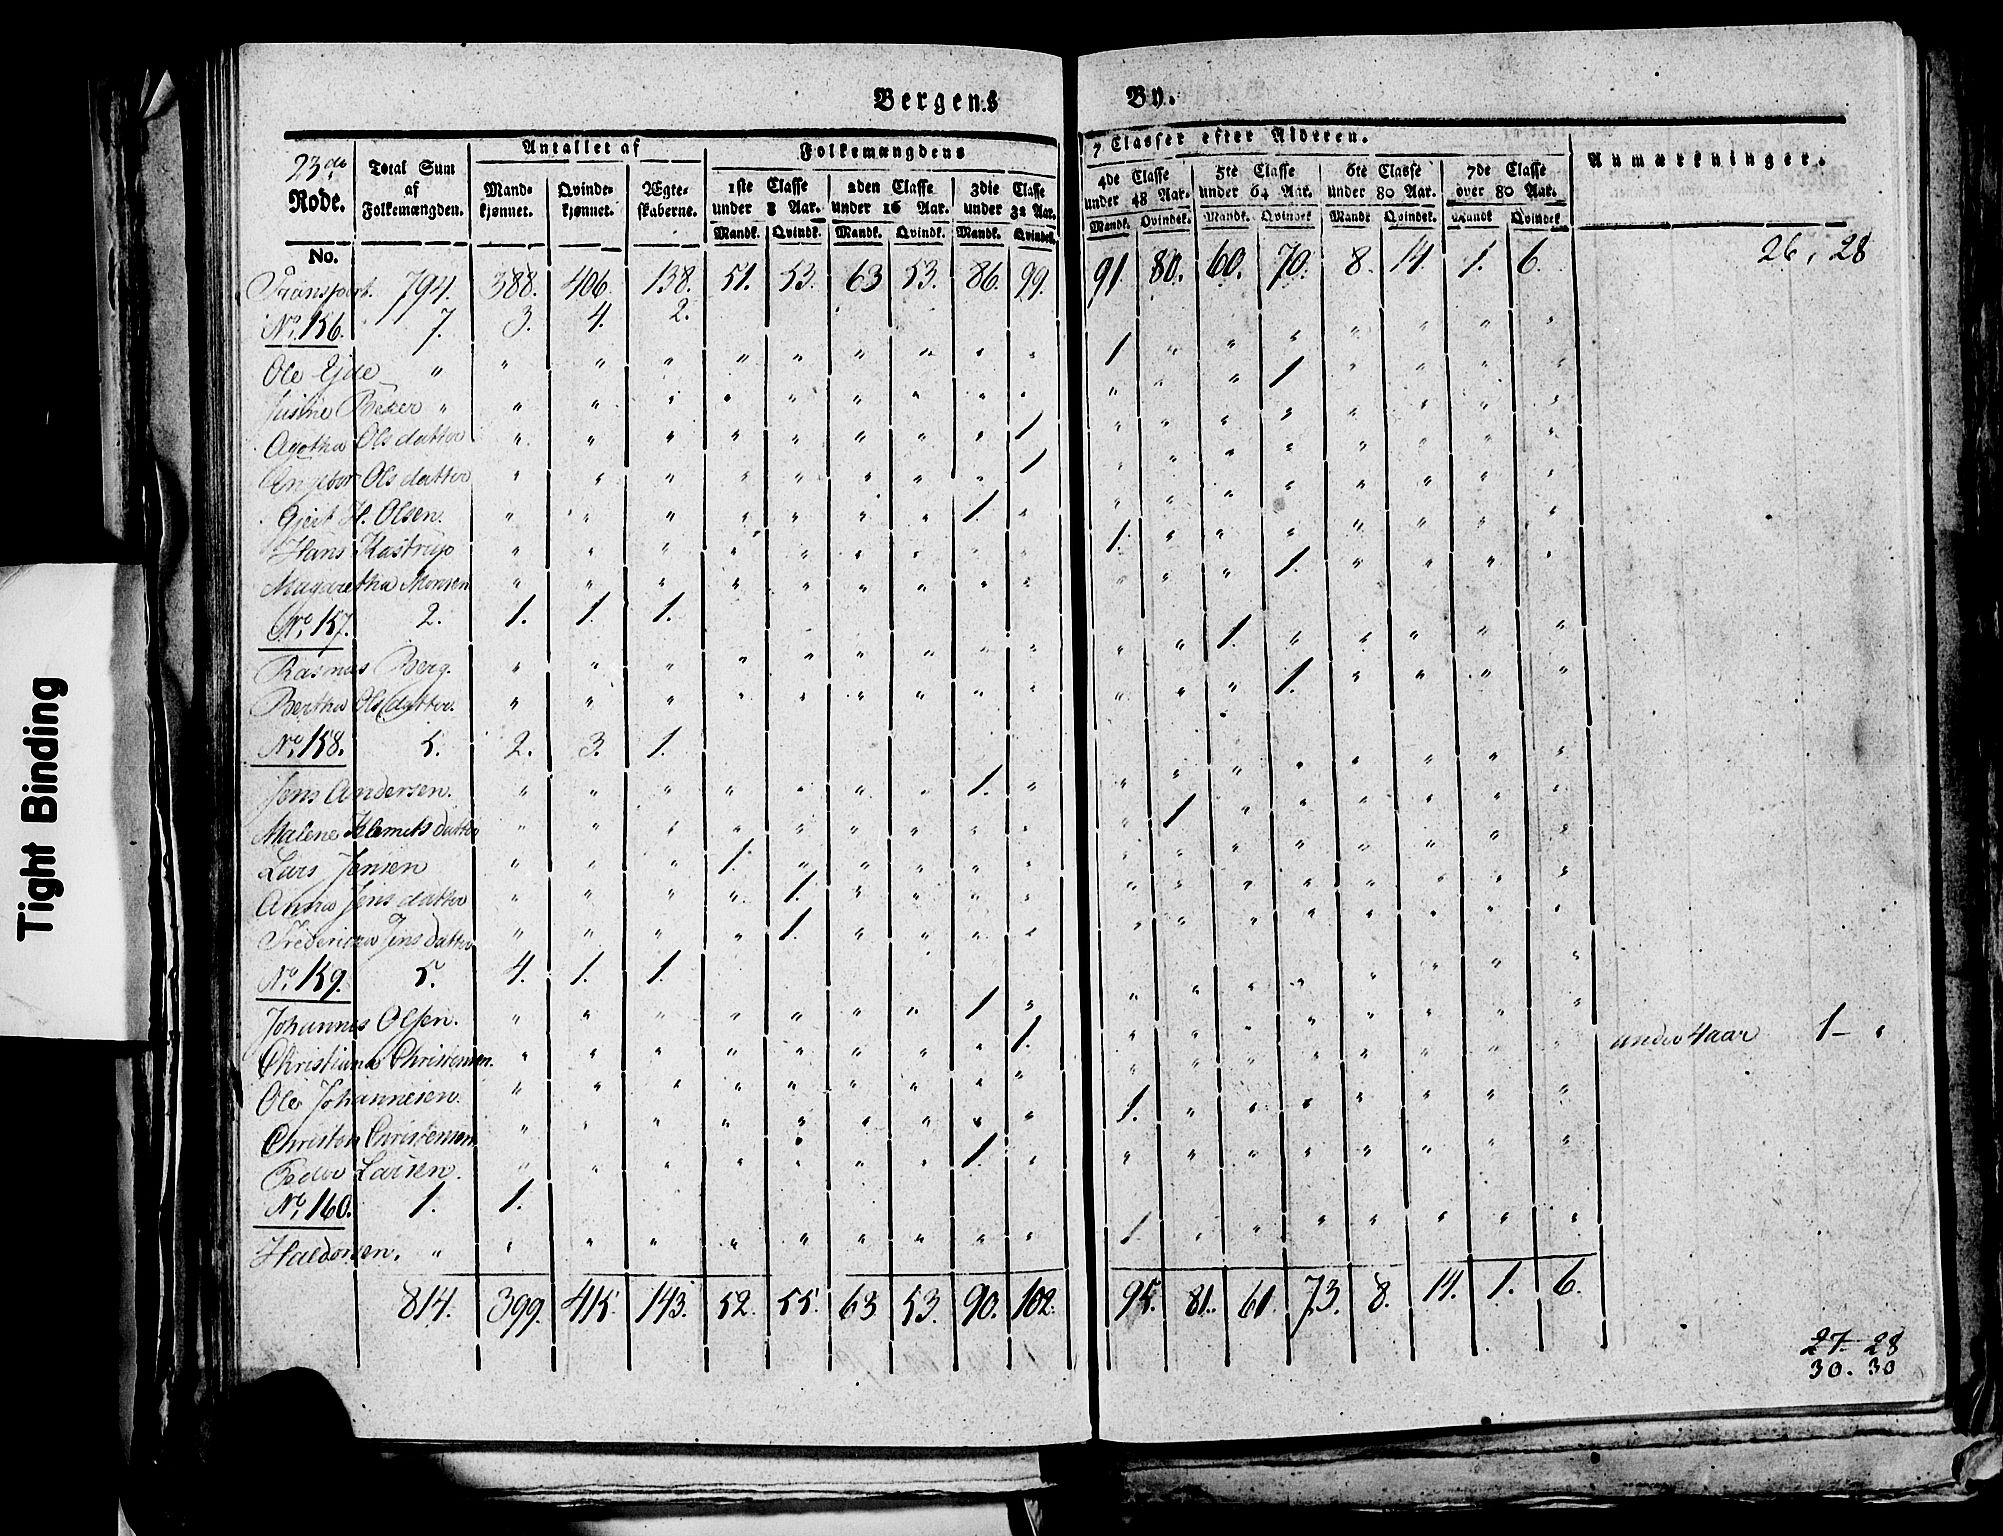 Bergens By.
23de Rode. No.
Total Sum af Folkemængden.
Antallet af
Mandkjønnet. Qvindekjønnet. Ægteskaberne.
Folkemængdens 7 Classer efter Alderen.
1ste Classe under 8 Aar. 2den Classe under 16 Aar. 3die Classe under 32 Aar. 4de Classe under 48 Aar. 5te Classe under 64 Aar. 6te Classe under 80 Aar. 7de Classe over 80 Aar.
Mandk. Qvindk. Mandk. Qvindk. Mandk. Qvindek. Mandk. Qvindek. Mandk. Qvindek Mandk Qvindek. Mandk Qvindek.
Anmærkninger.
Transport. 794. 388. 406. 138. 51. 53. 63 53. 86. 99. 91 80. 60. 70. 8. 14. 1. 6. 26, 28
No. 156. 7. 3. 4. 2.
Ole Eide " " " " " " " " " " 1 " " " " " " "
Baker " " " " " " " " " " " " " 1 " " " "
Agetha Olsdatter " " " " " " " " 1 " " " " " " " "
Olsdatter " " " " " " " " 1 " " " " " " " "
Giert H. Olsen. " " " " " " " 1. " " " " " " " " "
Hans Kastrup " " " " " " " " " 1. " " " " " " "
Magaretha Monsen " " " " " " " " " " " " 1. " " " "
No. 157. 2. 1. 1. 1.
Rasmus Berg. " " " " " " " " " " " 1. " " " " "
Bertha Olsdatter. " " " " " " " " " " " " 1. " " " "
No. 158. 5. 2. 3. 1.
Jens Andersen. " " " " " " " 1. " " " " " " " " "
Malene Klemetsdatter " " " " " " " " " " 1 " " " " " "
Lars Jensen " " " 1. " " " " " " " " " " " " "
Anna Jensdatter " " " " 1. " " " " " " " " " " " "
Jensdatter " " " " 1. " " " " " " " " " " " "
No. 159. 5. 4. 1. 1.
Johannes Olsen. " " " " " " " 1 " " " " " " " " "
Christiana Christensen. " " " " " " " " 1. " " " " " " " " under 4 aar 1 - "
Ole Johannesen. " " " " " " " " " " " " " " " " "
Christen Christensen. " " " " " " " " " 1. " " " " " " "
Peder Larsen. " " " " " " " 1. " " " " " " " " "
No. 160. 1. 1.
Haldorsen. " " " " " " " " " " 1 " " " " " " "
814. 399. 415 143. 52. 55. 63 53. 90. 102. 95. 81. 61. 73. 8. 14. 1. 6.
27 - 28
30. 30
Tight Binding